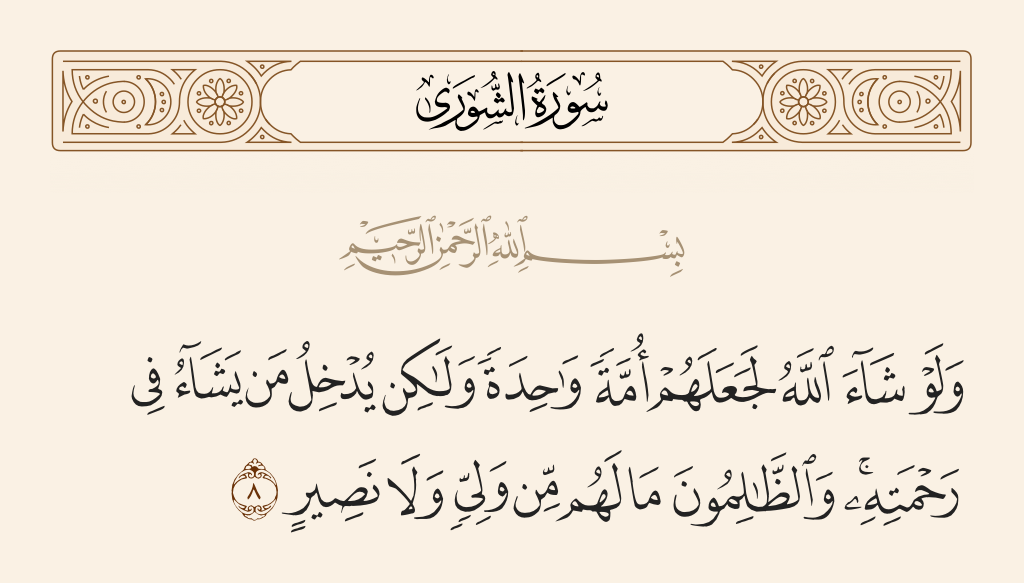 سُورَةُ الشُّورَىٰ
بِسْمِ ٱللَّهِ ٱلرَّحْمَٰنِ ٱلرَّحِيمِ
وَلَوْ شَآءَ ٱللَّهُ لَجَعَلَهُمْ أُمَّةً وَٰحِدَةً وَلَٰكِن يُدْخِلُ مَن يَشَآءُ فِى
رَحْمَتِهِۦ ۚ وَٱلظَّٰلِمُونَ مَا لَهُم مِّن وَلِىٍّ وَلَا نَصِيرٍ ٨